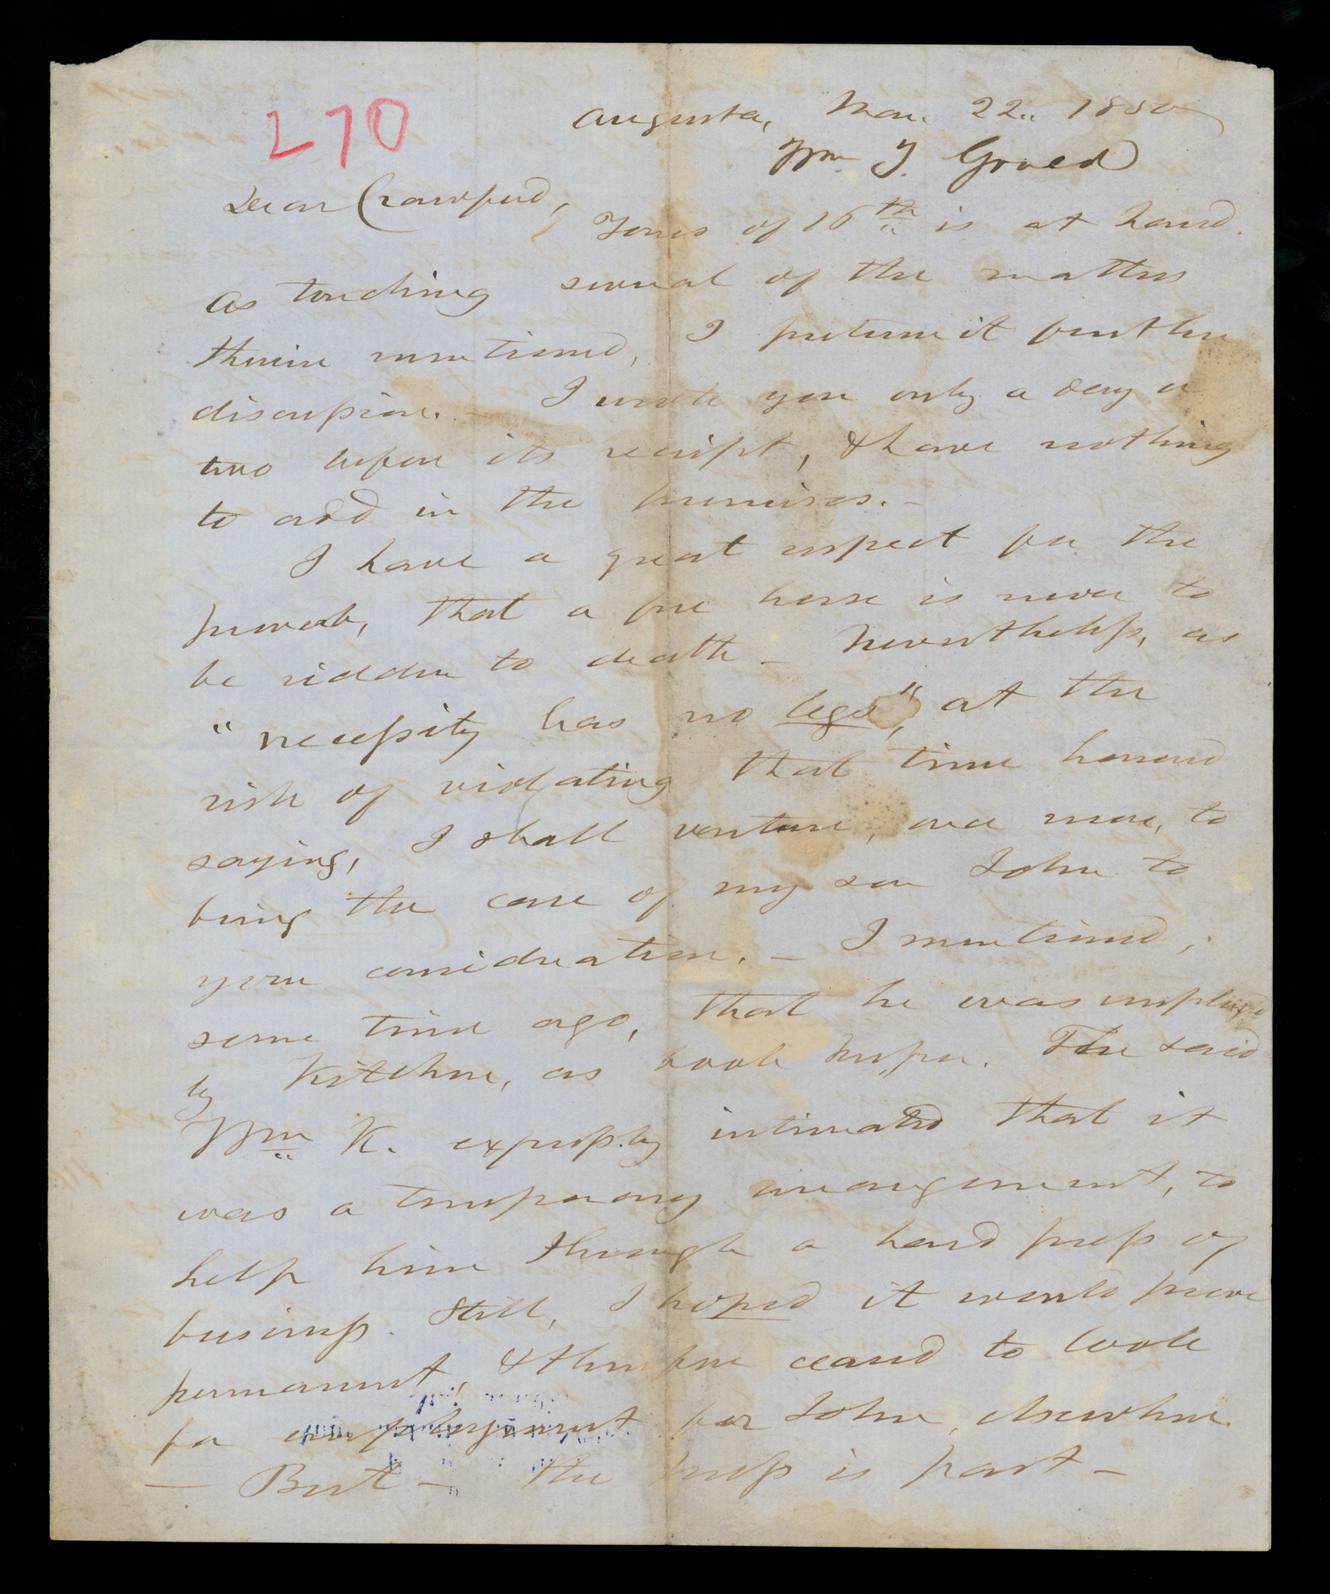 270
Augusta, Mar. 22. 1850
Wm. T. Gould
Dear Crawford,
Yours of 16th is at hand.
As touching several of the matters
therein mentioned, I pretermit further
discussion. – I wrote you only a day or
two before its receipt, & have nothing
to add in the premises. –
I have a great respect for the
proverb, that a free horse is never to
be ridden to death – Nevertheless, as
"necessity has no legs", at the
risk of violating that time honored
saying, I shall venture, once more, to
bring the case of my son John to
your consideration. – I mentioned,
some time ago, that he was employed
by Kitchen, as book keeper. The said
Wm K. expressly intimated that it
was a temporary arrangement, to
help him through a hard press of
business. Still, I hoped it would prove
permanent, & therefore ceased to look
for employment for John, elsewhere.
– But – the press is past –